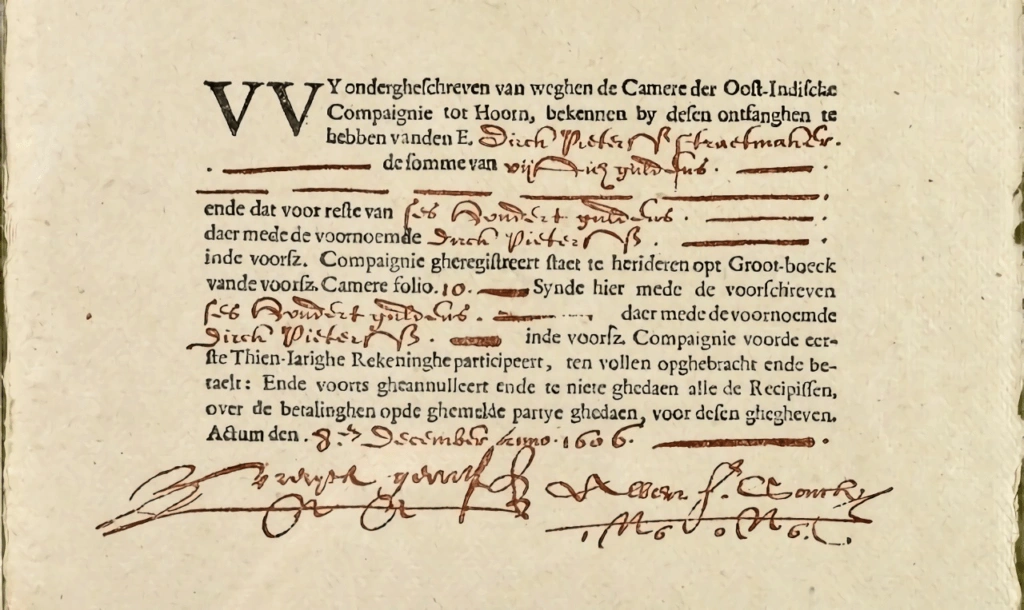 VVY ondergheschreven van weghen de Camere der Oost-Indische
Compaignie tot Hoorn, bekennen by desen ontfanghen te
hebben vanden E. Dirck Pietersß straetmaker.
de somme van vijftich guldens.
ende dat voor reste van ses hondert guldens.
daer mede de voornoemde Dirck Pietersß.
inde voorsz. Compaignie gheregistreert staet te herideren opt Groot-boeck
vande voorsz. Camere folio. 10. Synde hier mede de voorschreven
ses hondert guldens. daer mede de voornoemde
Dirck Pietersß. inde voorsz. Compaignie voorde eer-
ste Thien-Iarighe Rekeninghe participeert, ten vollen opghebracht ende be-
taelt: Ende voorts gheannulleert ende te niete ghedaen alle de Recipissen,
over de betalinghen opde ghemelde partye ghedaen, voor desen ghegheven.
Actum den. 8en December Anno. 1606.